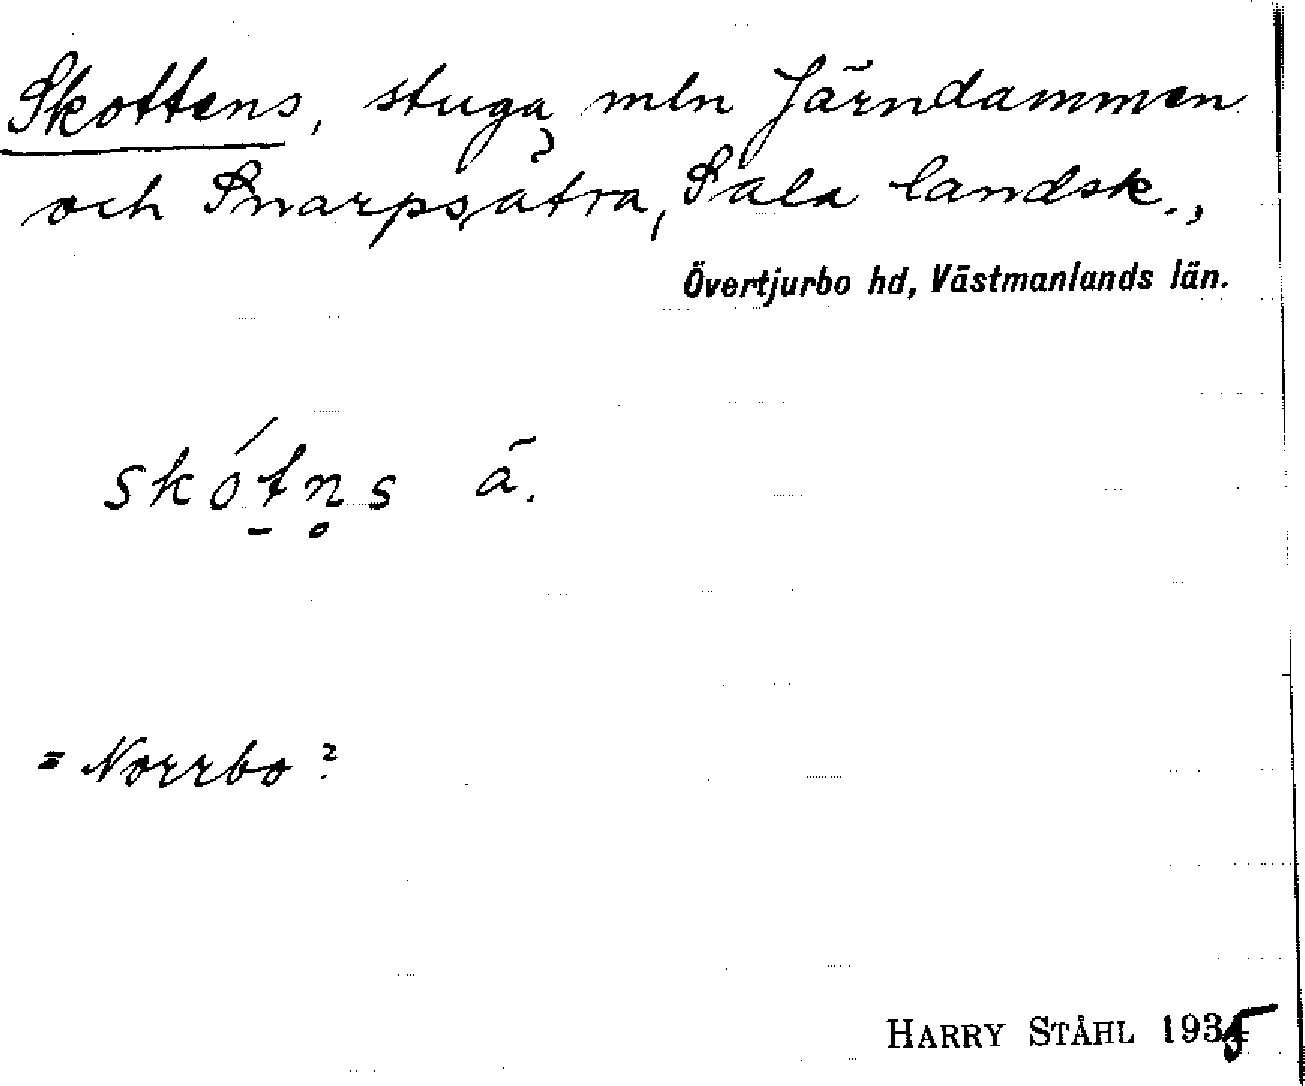 Skottens, stuga mln Järndammen
och Snarpsätra, Sala landsk.,
Övertjurbo hd, Västmanlands län.
skó̱tn̥s ä.
= Norrbo?
HARRY STÅHL 1935